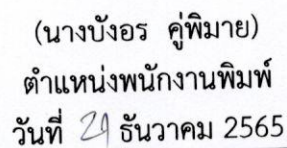 (นางบังอร คู่พิมาย)
ตำแหน่งพนักงานพิมพ์
วันที่ ธันวาคม 2565